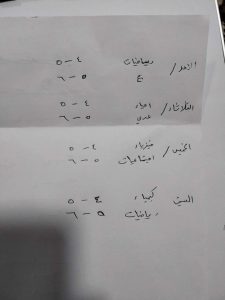 الأحد / رياضيات ٤ - ٥
ع ٥ - ٦
الثلاثاء / احياء ٤ - ٥
عربي ٥ - ٦
الخميس / فيزياء ٤ - ٥
اجتماعيات ٥ - ٦
السبت كيمياء ٤ - ٥
رياضيات ٥ - ٦